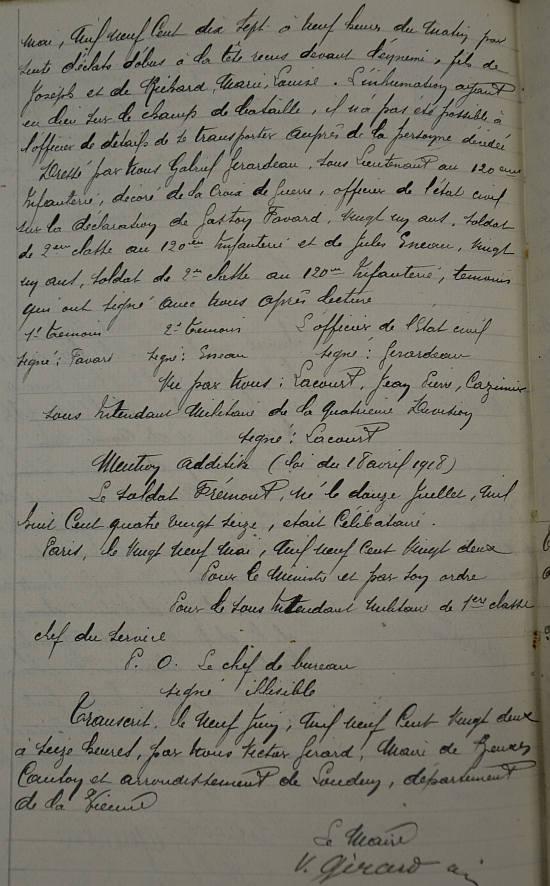 mai, mil neuf cent dix sept à neuf heures du matin par
suite d'éclats d'obus à la tête reçus devant l'ennemi, fils de
Joseph et de Richard, Marie, Louise. L'inhumation ayant
eu lieu sur le champ de bataille, il n'a pas été possible à
l'officier de détails de se transporter auprès de la personne décédée
Dressé par nous Gabriel Gerardeau, sous Lieutenant au 120eme
Infanterie, décoré de la Croix de Guerre, officier de l'état civil
sur la déclaration de Gaston Favard, vingt un ans, soldat
de 2eme classe au 120eme Infanterie et de Jules Eneau, vingt
un ans, soldat de 2eme classe au 120eme Infanterie, temoins
qui ont signé avec nous après lecture
1er temoin 2e temoin L'officier de l'Etat civil
signé: Favard signé: Eneau signé: Gerardeau
Vu par nous: Lacourt, Jean, Pierre, Cazimir
sous Intendant militaire de la quatrième Division
signé: Lacourt
Mention additive (loi du 18 avril 1918)
Le soldat Frémont, né le douze Juillet, mil
huit cent quatre vingt seize, était célibataire.
Paris, le vingt neuf mai, mil neuf cent vingt deux
Pour le Ministre et par son ordre
Pour le sous Intendant militaire de 1ere classe
chef du service
P. O. Le chef de bureau
signé illisible
Transcrit, le neuf Juin, mil neuf cent vingt deux
à seize heures, par nous Victor Girard, Maire de
Canton et arrondissement de Loudun, département
de la Vienne
Le Maire
V. Girard